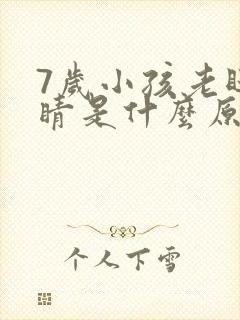 7歲小孩老
睛是什麼原
个人下雪